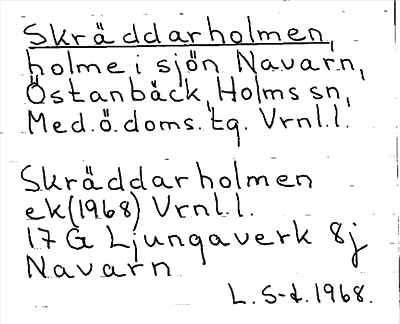 Skräddarholmen,
holme i sjön Navarn,
Östanbäck, Holms sn,
Med.ö.doms.tg. Vrnl.l.
Skräddarholmen
ek(1968) Vrnl.l.
17 G Ljungaverk 8j
Navarn
L. S-d. 1968.